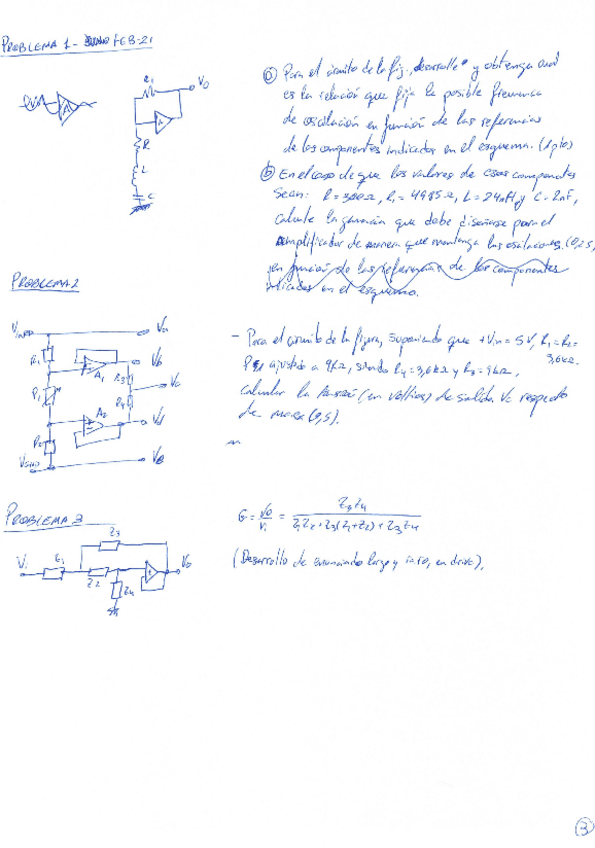 PROBLEMA 1 - FEB-21
a) Para el circuito de la fig, desarrolle y obtenga cual
es la relación que fija la posible frecuencia
de oscilación en función de las referencias
de los componentes indicados en el esquema. (1 pto)
b) En el caso de que los valores de esos componentes
sean: R = 300Ω, R₁ = 4985Ω, L = 24mH y C = 2nF,
calcule la ganancia que debe diseñarse para el
amplificador de manera que mantenga las oscilaciones. (0,25,
en función de las referencias de los componentes
indicados en el esquema.
A
R₁
V₀
A
R
L
C
PROBLEMA 2
- Para el circuito de la figura, suponiendo que +Vin = 5V, R₁ = R₂ =
3,6kΩ.
P₁ ajustado a 9kΩ, siendo R₄ = 3,6kΩ y R₃ = 9kΩ,
calcular la tensión (en voltios) de salida Vc respecto
de masa (0,5).
Va
R₁
A₁
Vb
R₃
Vc
P₁
R₄
A₂
Vd
R₂
Ve
PROBLEMA 3
G = V₀/Vᵢ = Z₃Z₄ / Z₁Z₂ + Z₃(Z₁+Z₂) + Z₃Z₄
(Desarrollo de enunciado largo y info, en drive).
Z₃
Vᵢ
Z₁
Z₂
Z₄
V₀
3